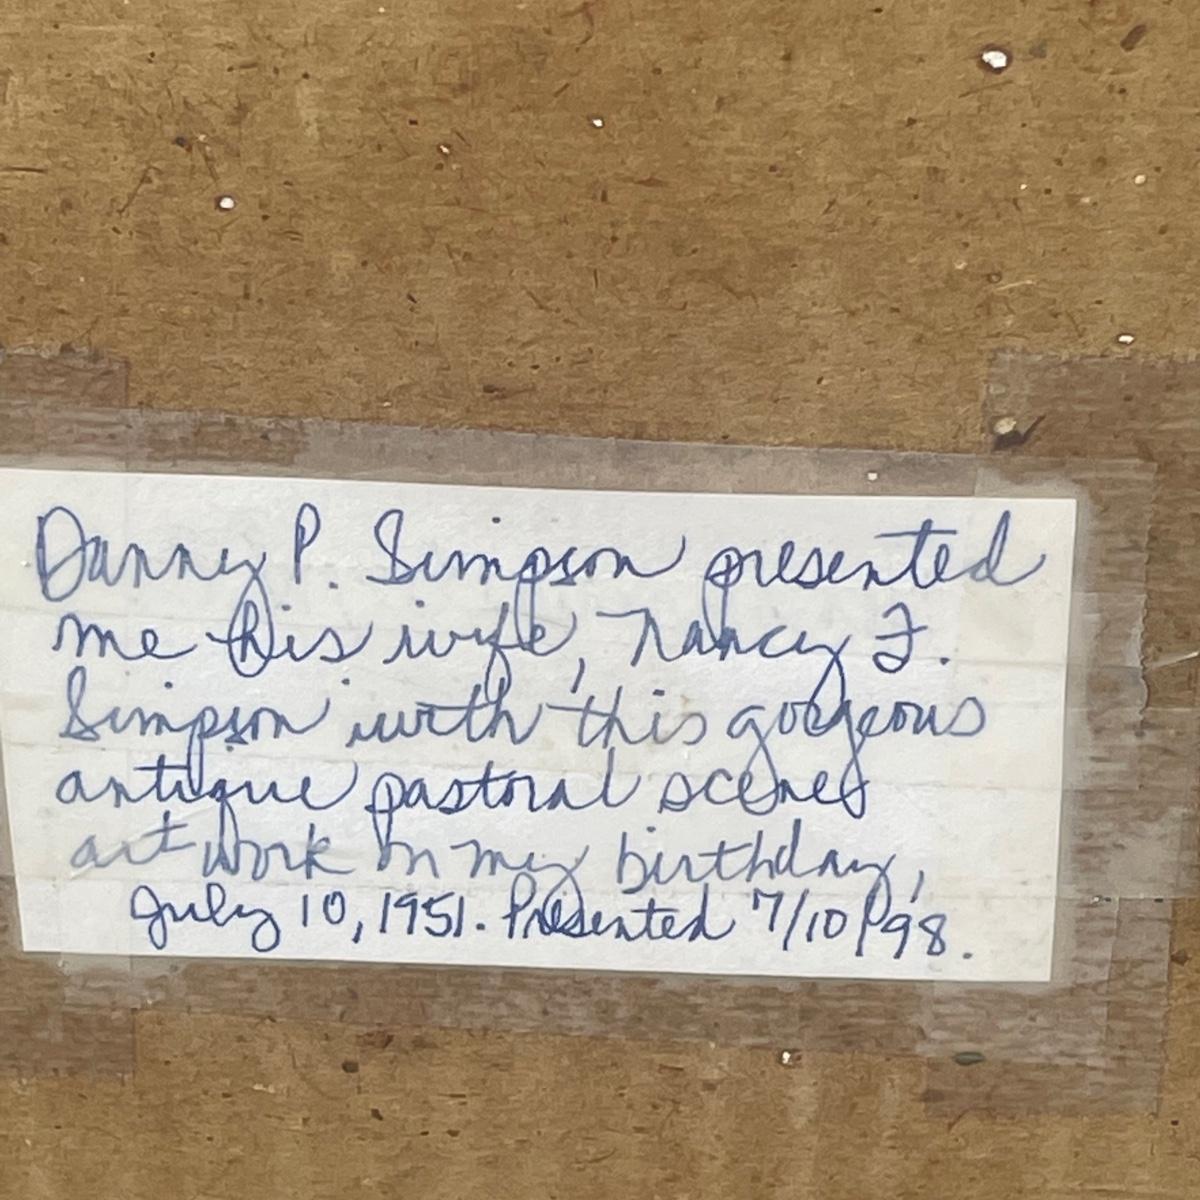 Danney P. Simpson presented
me his wife, Nancy F.
Simpson with this gorgeous
antique pastoral scenes
art work on my birthday,
July 10, 1951. Presented 7/10/98.